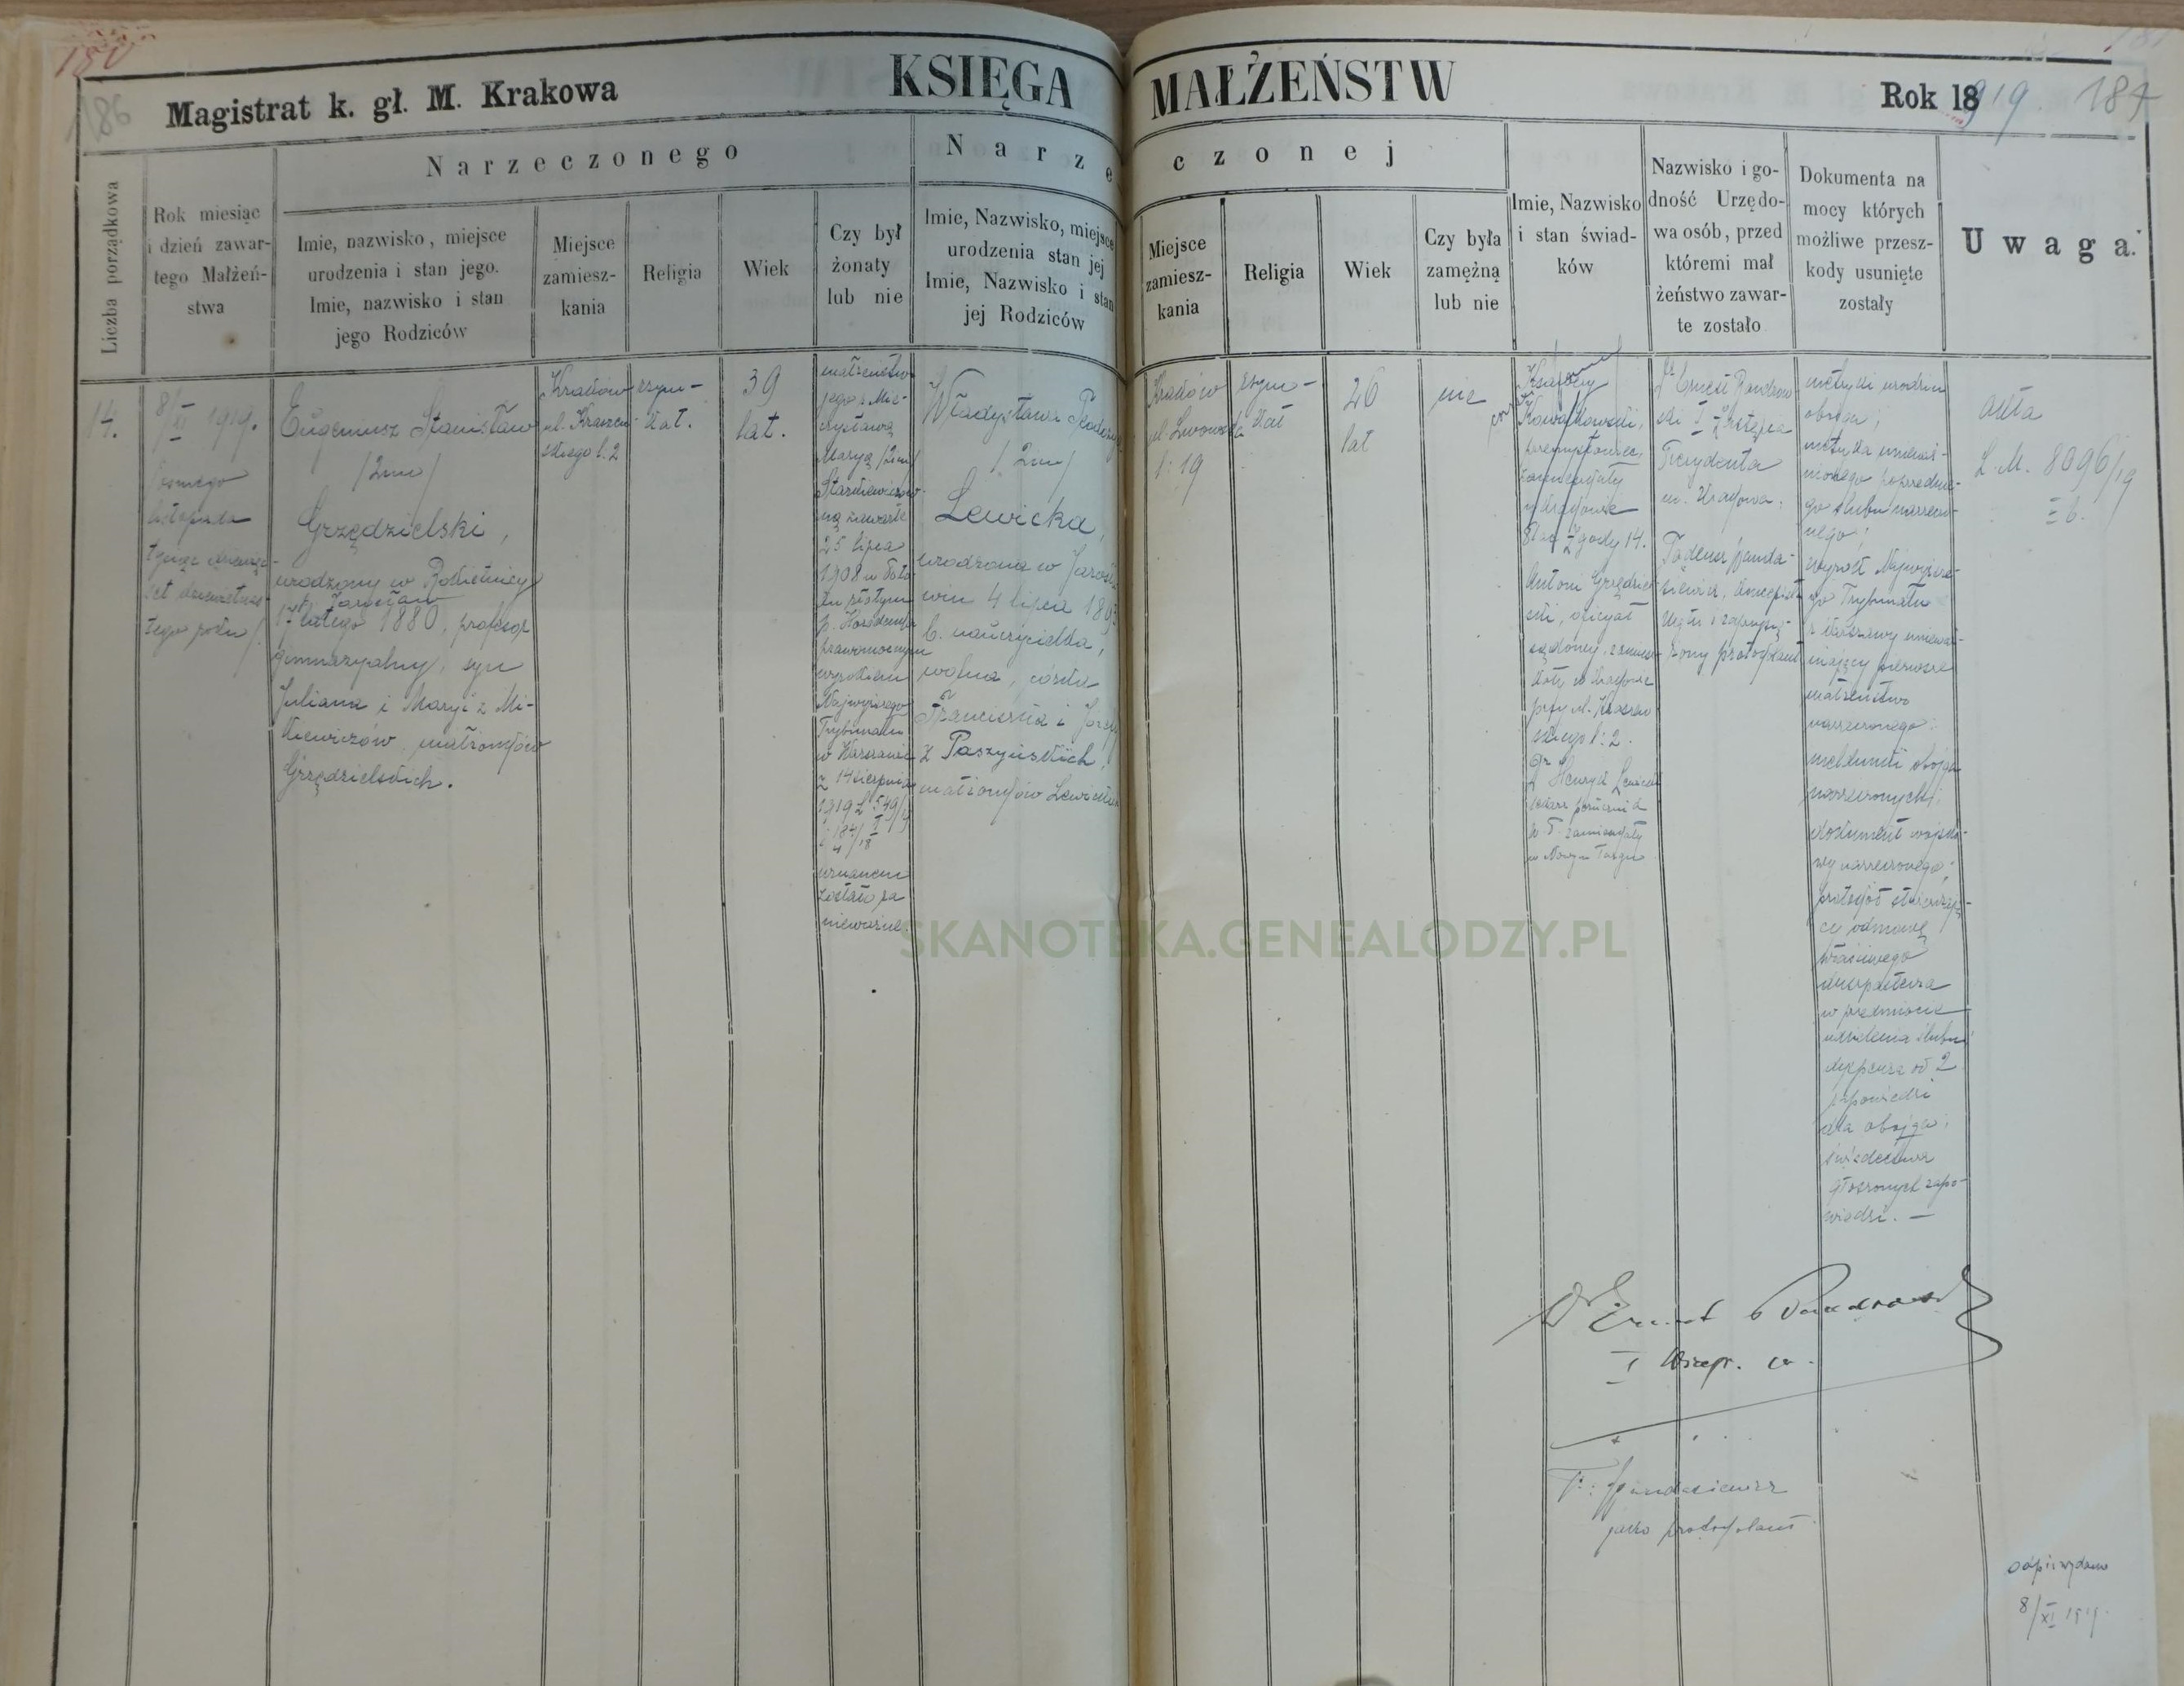 186
Magistrat k. gł. M. Krakowa
KSIĘGA MAŁŻEŃSTW
Rok 1919.
187
Liczba porządkowa
Rok miesiąc
i dzień zawar-
tego Małżeń-
stwa
Narzeczonego
Imie, nazwisko, miejsce
urodzenia i stan jego.
Imie, nazwisko i stan
jego Rodziców
Miejsce
zamiesz-
kania
Religia
Wiek
Czy był
żonaty
lub nie
Narzeczonej
Imie, Nazwisko, miejsce
urodzenia stan jej
Imie, Nazwisko i stan
jej Rodziców
Miejsce
zamiesz-
kania
Religia
Wiek
Czy była
zamężną
lub nie
Imie, Nazwisko
i stan świad-
ków
Nazwisko i go-
dność Urzędo-
wa osób, przed
któremi mał
żeństwo zawar-
te zostało
Dokumenta na
mocy których
możliwe przesz-
kody usunięte
zostały
Uwaga.
14.
8/XI 1919.
listopada
tysiąc dziewię-
set dziewiętnas-
tego roku/
Eugeniusz Stanisław
/2im/
Grzędzielski,
urodzony w Rokietnicy
p. Jarosław
17 lutego 1880, profesor
gimnazyalny, syn
Juliana i Maryi z Mi-
kiewiczów małżonków
Grzędzielskich.
Kraków
ul. Kraszew-
skiego l: 2
rzym-
kat.
39
lat.
małżeństwo
jego z Mie-
czysławą
Maryą /2im/
Stankiewiczów-
ną zawarte
25 lipca
1908 w
prawomocnym
wyrokiem
Najwyższego
Trybunału
w Warszawie
z 14 sierpnia
1919
uznanem
zostało za
nieważne.
Władysława
/2im/
Lewicka,
urodzona w Jarosła-
wiu 4 lipca 1893
b. nauczycielka,
wolna, córka
Franciszka i Józefy
z Paszyńskich,
małżonków Lewickich
Kraków
ul. Lwowska
l: 19
rzym-
kat
26
lat
nie
Kawałkowski,
przemysłowiec,
zamieszkały
w Krakowie
Plac Zgody 14.
Antoni Grzędziel-
ski, oficyał
sądowy, zamiesz-
kały w Krakowie
przy ul. Kraszew-
skiego l: 2.
Dr Henryk Lewicki
lekarz porucznik
W. P. zamieszkały
w Nowym Targu
Dr Ernest Bandrow-
ski I Zastępca
Prezydenta
m. Krakowa;
Tadeusz
i zaprzysię-
żony protokolant
metryki urodzin
obojga;
metryka unieważ-
nionego poprzednie-
go ślubu narzeczo-
nego;
wyrok Najwyższe-
go Trybunału
z Warszawy unieważ-
niający pierwsze
małżeństwo
narzeczonego;
meldunki obojga
narzeczonych;
dokument wojsko-
wy narzeczonego;
protokół stwierdzają-
cy odmowę
właściwego
duszpasterza
w przedmiocie
udzielenia ślubu;
dyspenza od 2
zapowiedzi
dla obojga;
świadectwa
głoszonych zapo-
wiedzi. —
akta
L. M. 8096/19
III b.
Dr Ernest Bandrowski
I Wicepr. m.
jako protokolant
odpis wydano
8/XI 1919.
SKANOTEKA.GENEALODZY.PL